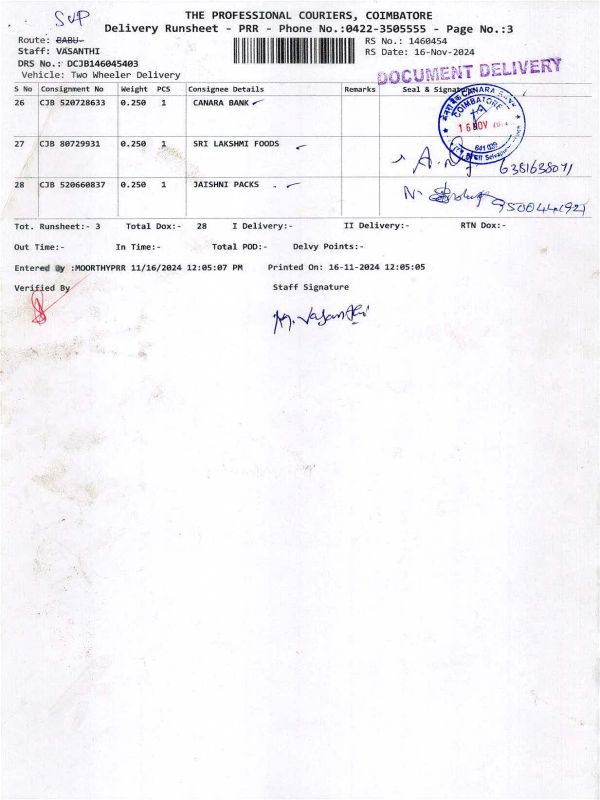 SVP
THE PROFESSIONAL COURIERS, COIMBATORE
Delivery Runsheet - PRR - Phone No.:0422-3505555 - Page No.:3
Route: BABU
RS No.: 1460454
Staff: VASANTHI
RS Date: 16-Nov-2024
DRS No.: DCJB146045403
DOCUMENT DELIVERY
Vehicle: Two Wheeler Delivery
S No Consignment No Weight PCS Consignee Details Remarks Seal & Signature
26 CJB 520728633 0.250 1 CANARA BANK
CANARA
COIMBATORE
16 NOV
641 039
27 CJB 80729931 0.250 1 SRI LAKSHMI FOODS
6381638071
28 CJB 520660837 0.250 1 JAISHNI PACKS .
Tot. Runsheet:- 3 Total Dox:- 28 I Delivery:- II Delivery:- RTN Dox:-
Out Time:- In Time:- Total POD:- Delvy Points:-
Entered By :MOORTHYPRR 11/16/2024 12:05:07 PM Printed On: 16-11-2024 12:05:05
Verified By Staff Signature
M. Vasanthi